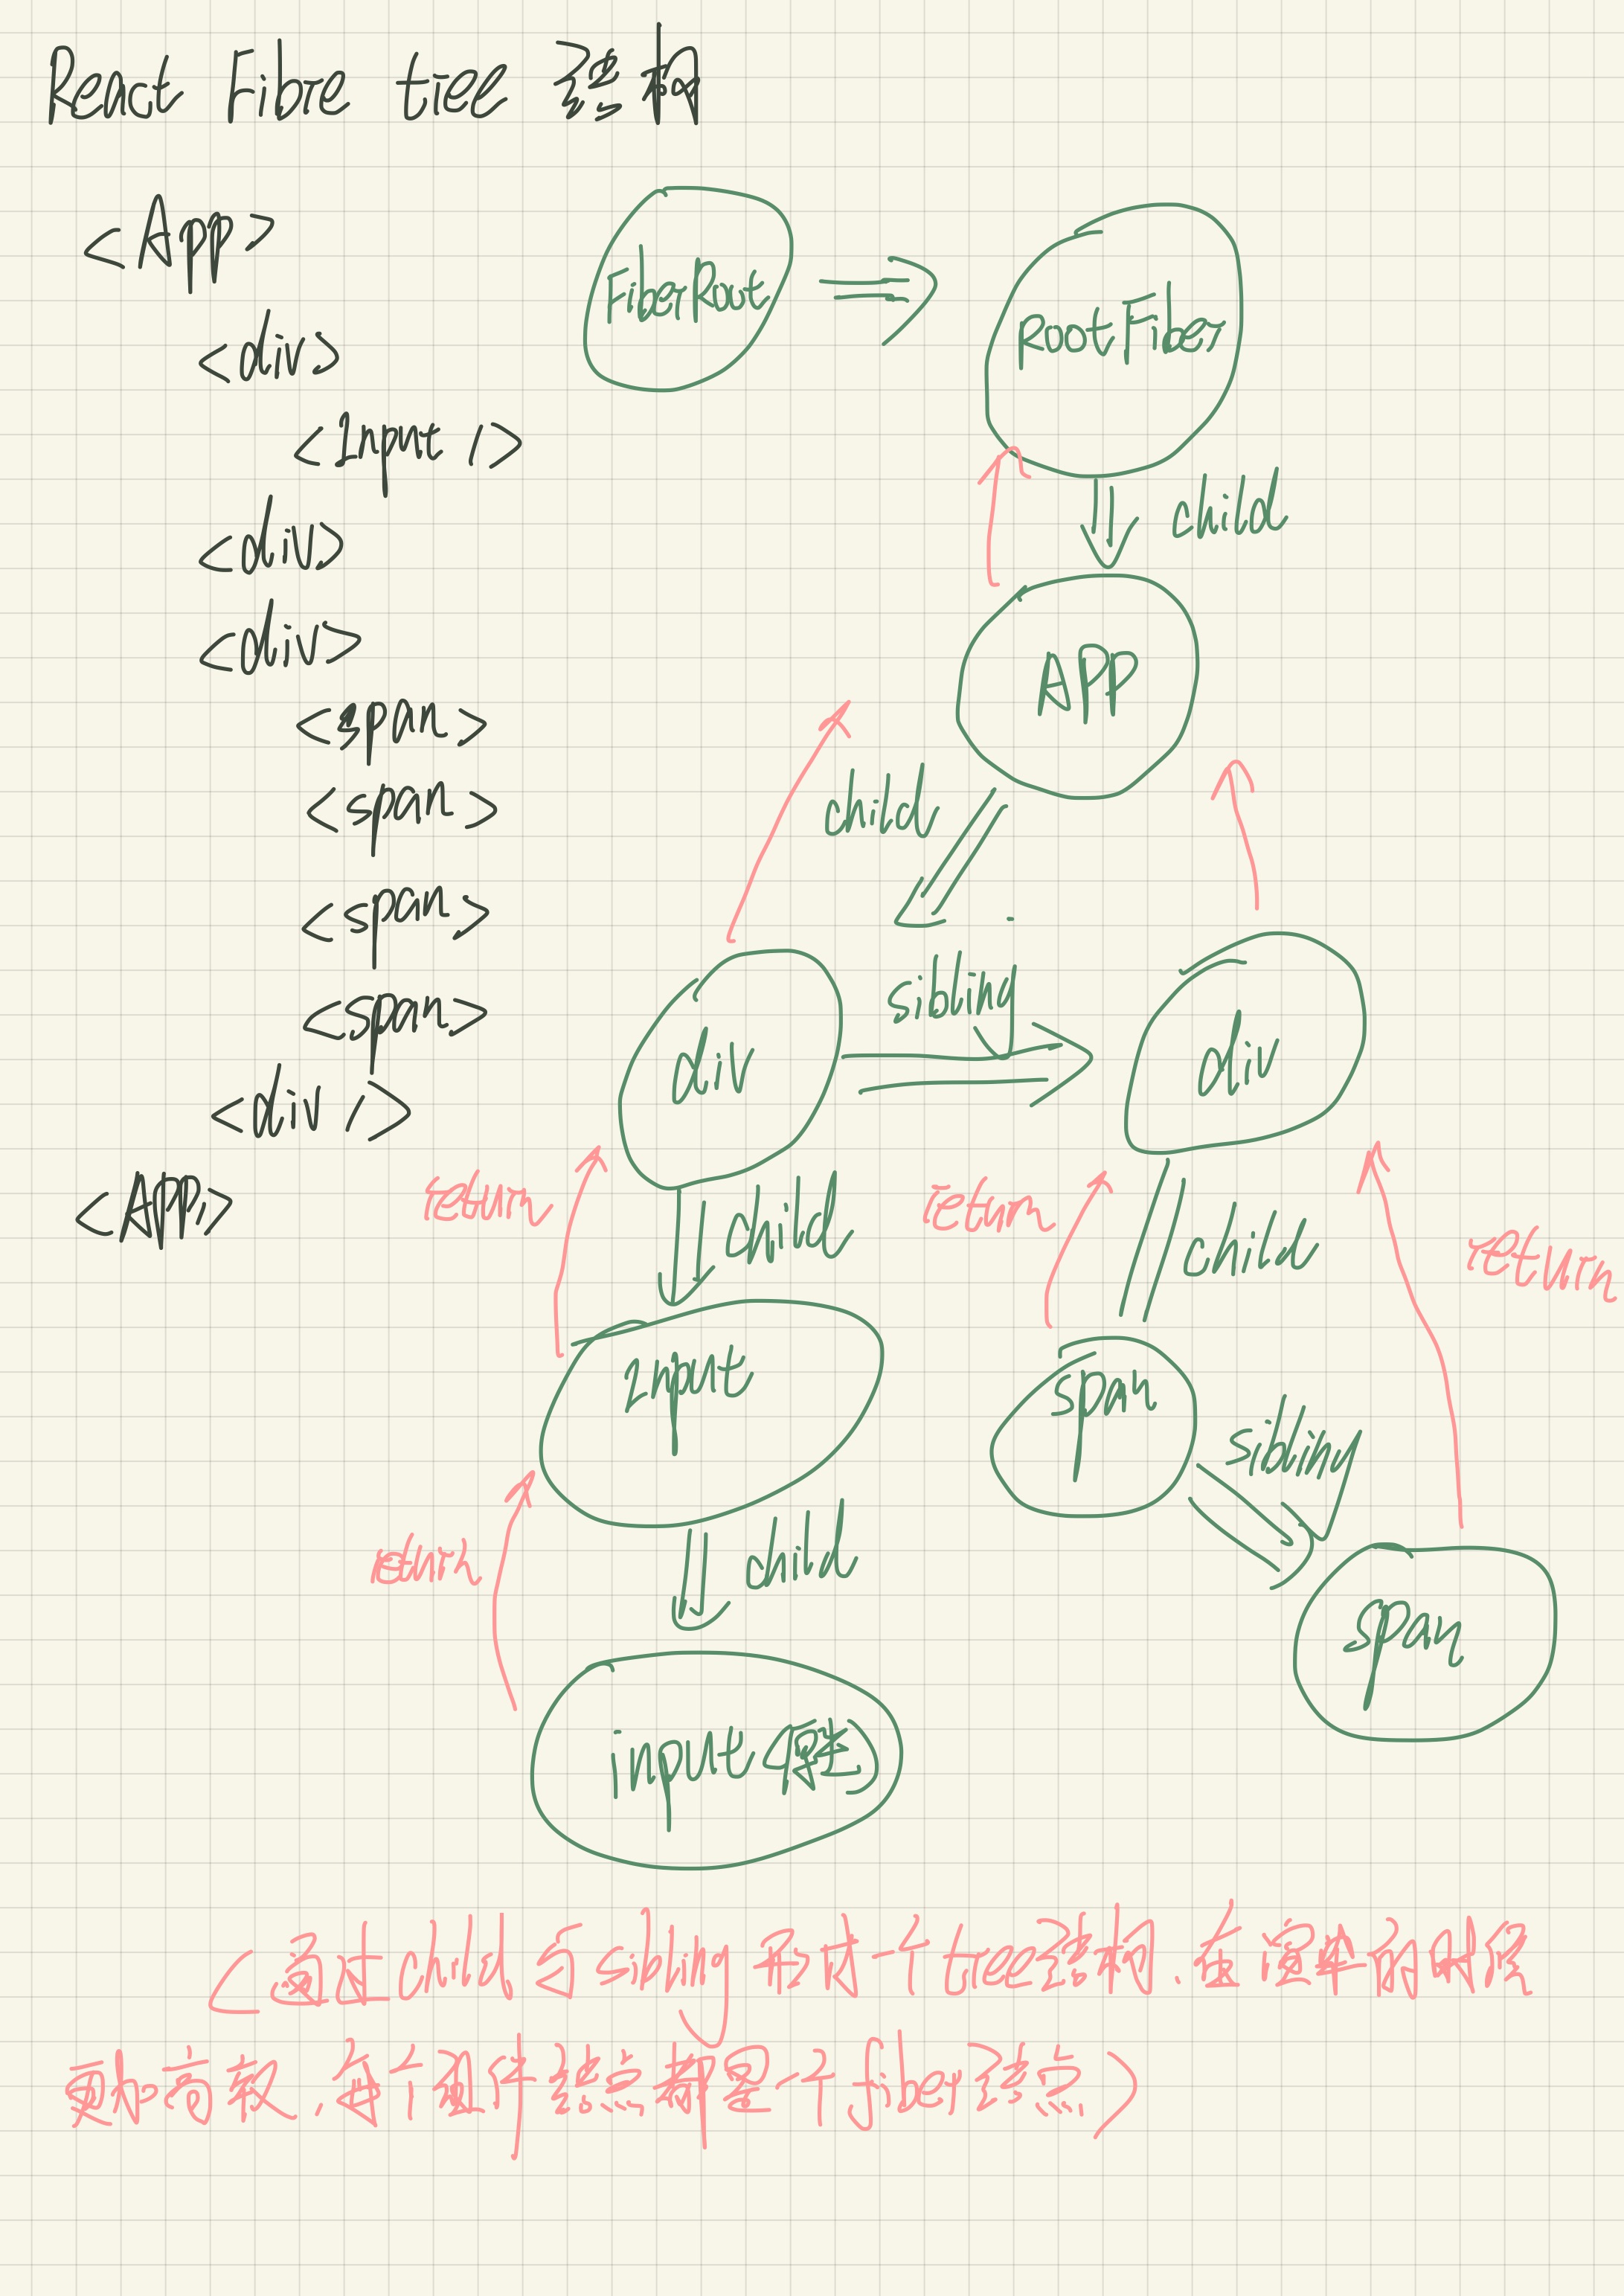 React Fibre tree 结构
<App>
<div>
<Input />
<div>
<div>
<span>
<span>
<span>
<span>
<div />
<App>
FiberRoot
RootFiber
child
APP
child
sibling
div
div
return
child
return
child
return
Input
span
sibling
return
child
span
input (原生)
(通过child与sibling形成一个tree结构.在渲染的时候
更加高效.每个组件结点都是一个fiber结点)